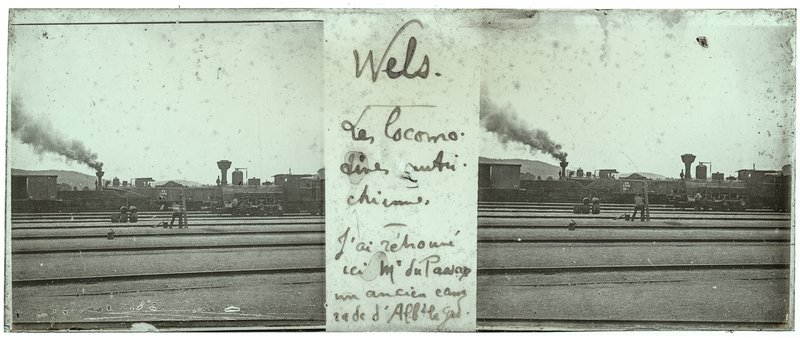 Wels.
Les locomo-
tives autri-
chienne.
J'ai retrouvé
ici Mr du Passage
un ancien cama
rade d'Albt le Gd.